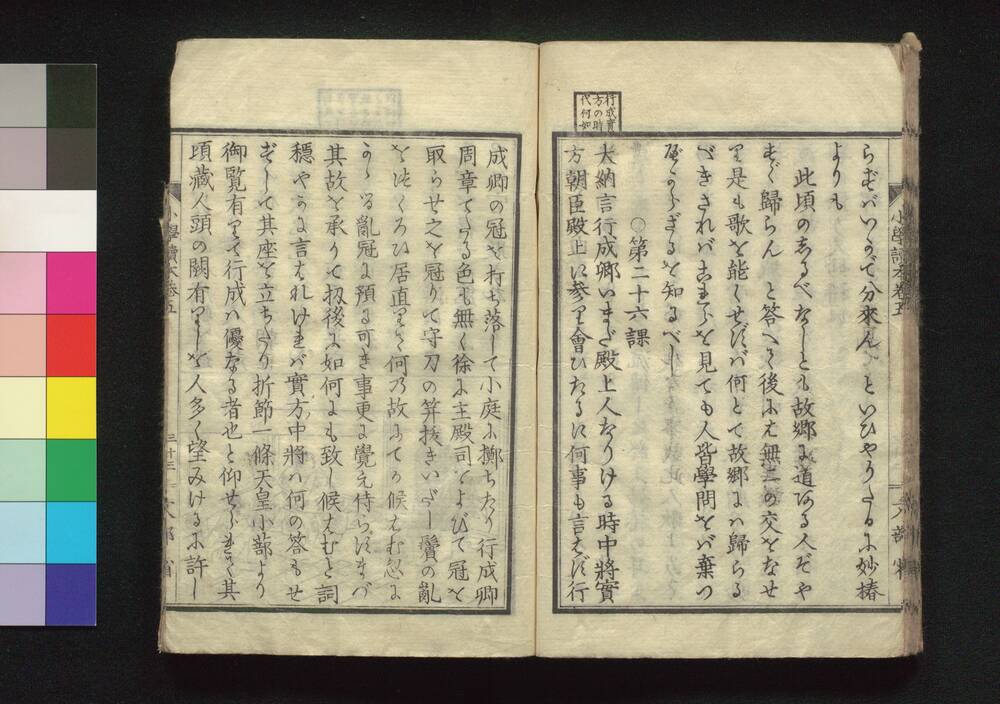 らずバいかで八分來んといひやりたるに妙椿
よりも
此頃のあるべなしとも故郷に道ある人ぞや
すく歸らんと答へて後にハ無二の交をなせ
り是も歌を能くせずバ何とて故郷にハ歸らる
べきされバこれらを見ても人皆學問をバ棄つ
べからざるを知るべし
○第二十六課
大納言行成卿いまだ殿上人なりける時中將實
方朝臣殿上に參り會ひたるに何事も言はず行
行成實
方の時
代何如
小學讀本卷五
文部省
成卿の冠を打ち落して小庭に擲ちたり行成卿
周章てたる色も無く徐に主殿司をよびて冠を
取らせ之を冠りて守刀の笄拔きいだし鬢の亂
をつくろひ居直りて何の故にてか候はむ忽に
かゝる亂冠に預る可き事更に覺え侍らずまづ
其故を承りて扨後に如何にも致し候はむと詞
穩やかに言はれければ實方中將ハ何の答もせ
ずして其座を立ちたり折節一條天皇小蔀より
御覽有りて行成ハ優なる者也と仰せられて其
頃藏人頭の闕有りしを人多く望みけるに許し
小學讀本卷五
三十三
文部省